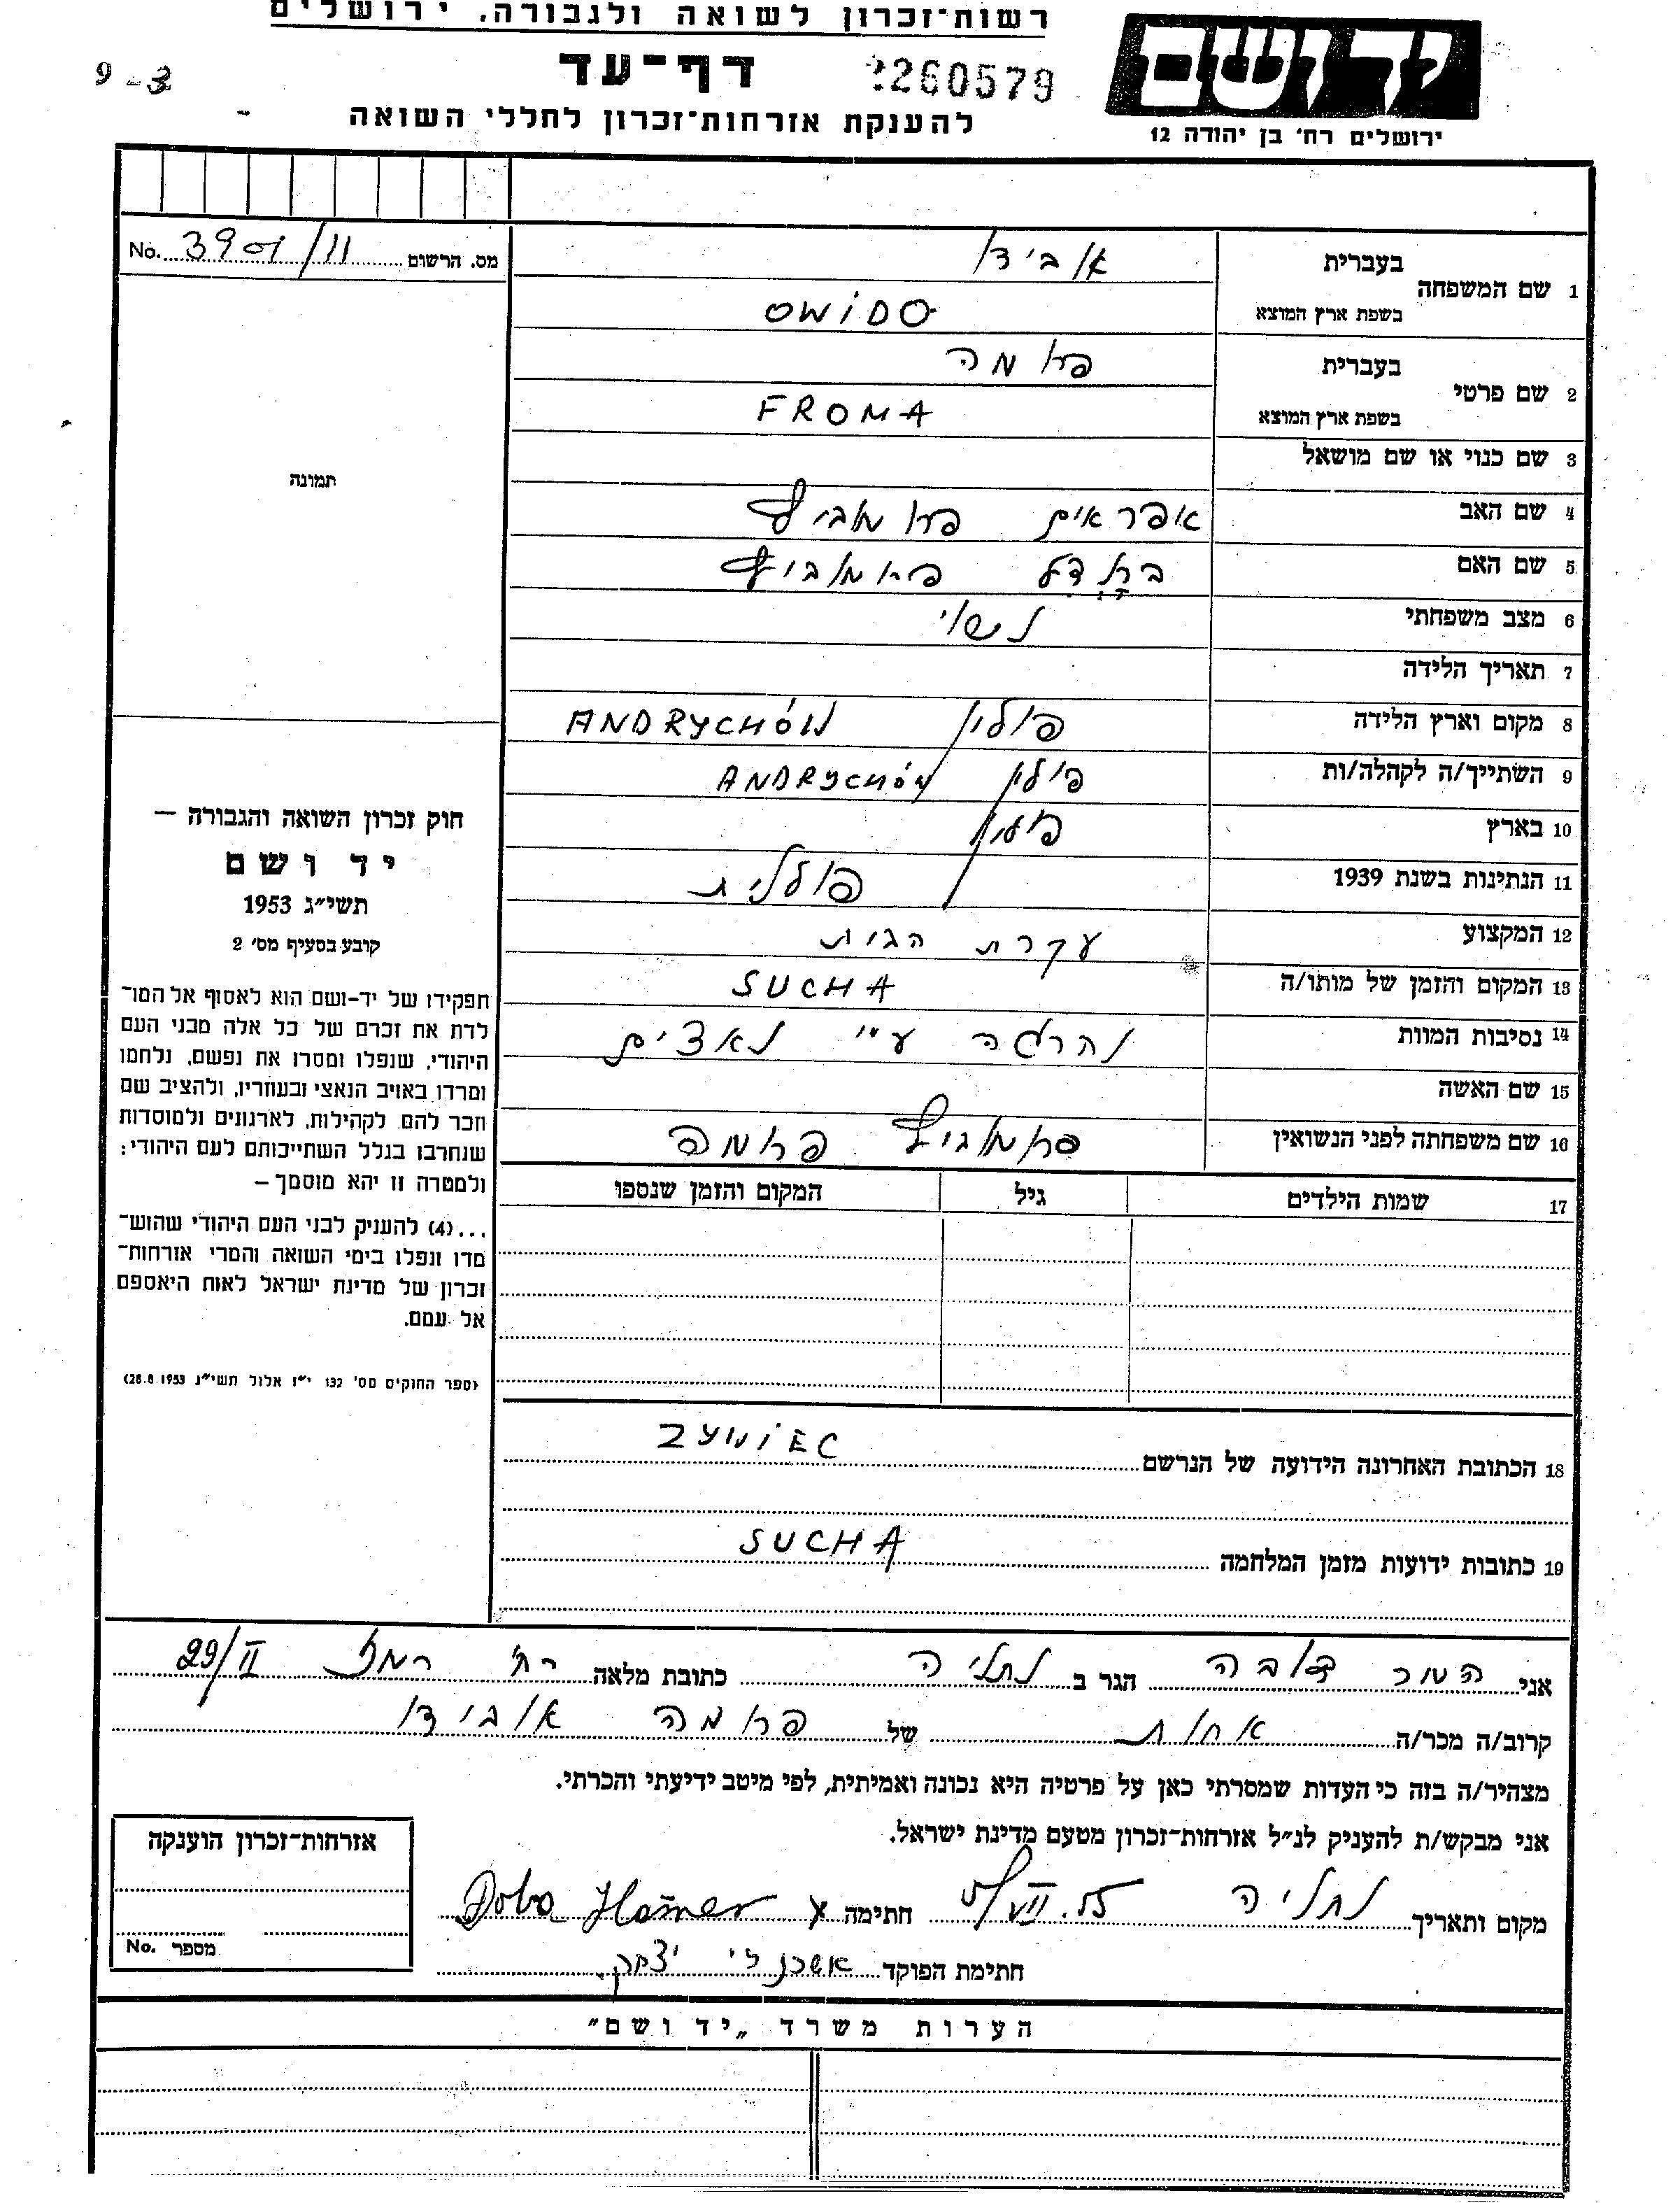 רשות־זכרון לשואה ולגבורה, ירושלים
יד ושם
ירושלים רח' בן יהודה 12
2260579
דף־עד
9-3
להענקת אזרחות־זכרון לחללי השואה
מס. הרשום 3901/11 No.
1 שם המשפחה
בעברית אובידו
בשפת ארץ המוצא OWIDO
2 שם פרטי
בעברית פרומה
בשפת ארץ המוצא FROMA
3 שם כנוי או שם מושאל
4 שם האב אפראים
5 שם האם
6 מצב משפחתי נשוי
7 תאריך הלידה
8 מקום וארץ הלידה פולין ANDRYCHÓW
9 השתייך/ה לקהלה/ות פולין ANDRYCHÓW
10 בארץ פולין
11 הנתינות בשנת 1939 פולנית
12 המקצוע עקרת הבית
13 המקום והזמן של מותו/ה SUCHA
14 נסיבות המוות נהרגה ע"י נאצים
15 שם האשה
16 שם משפחתה לפני הנשואין פרומה
17 שמות הילדים גיל המקום והזמן שנספו
18 הכתובת האחרונה הידועה של הנרשם ZYWIEC
19 כתובות ידועות מזמן המלחמה SUCHA
תמונה
חוק זכרון השואה והגבורה —
יד ושם
תשי״ג 1953
קובע בסעיף מס' 2
תפקידו של יד-ושם הוא לאסוף אל המו־
לדת את זכרם של כל אלה מבני העם
היהודי, שנפלו ומסרו את נפשם, נלחמו
ומרדו באויב הנאצי ובעוזריו, ולהציב שם
וזכר להם, לקהילות, לארגונים ולמוסדות
שנחרבו בגלל השתייכותם לעם היהודי;
ולמטרה זו יהא מוסמך —
...(4) להעניק לבני העם היהודי שהוש־
מדו ונפלו בימי השואה והמרי אזרחות־
זכרון של מדינת ישראל לאות היאספם
אל עמם.
(ספר החוקים מס' 132 י״ז אלול תשי״ג 28.8.1953)
אני המר דובה הגר ב נתניה כתובת מלאה רח' רמז 29/II
קרוב/ה מכר/ה אחות של פרומה אובידו
מצהיר/ה בזה כי העדות שמסרתי כאן על פרטיה היא נכונה ואמיתית, לפי מיטב ידיעתי והכרתי.
אני מבקש/ת להעניק לנ״ל אזרחות־זכרון מטעם מדינת ישראל.
מקום ותאריך נתניה 5/VII.55 חתימה x Doba Hamer
חתימת הפוקד יצחק
אזרחות־זכרון הוענקה
מספר No.
הערות משרד „יד ושם״